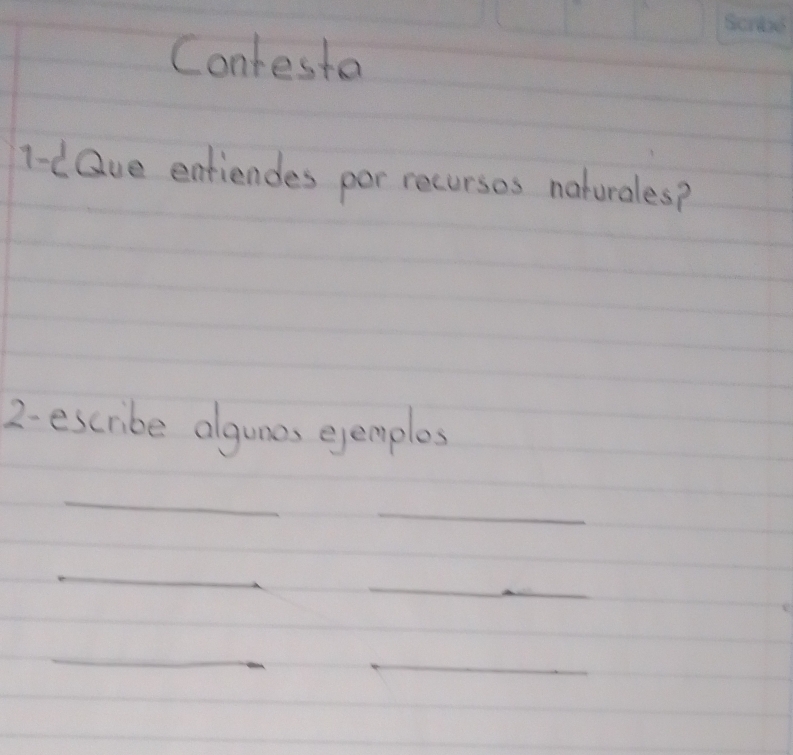 Scribe
Contesta
1-¿Que entiendes por recursos naturales?
2-escribe algunos ejemplos